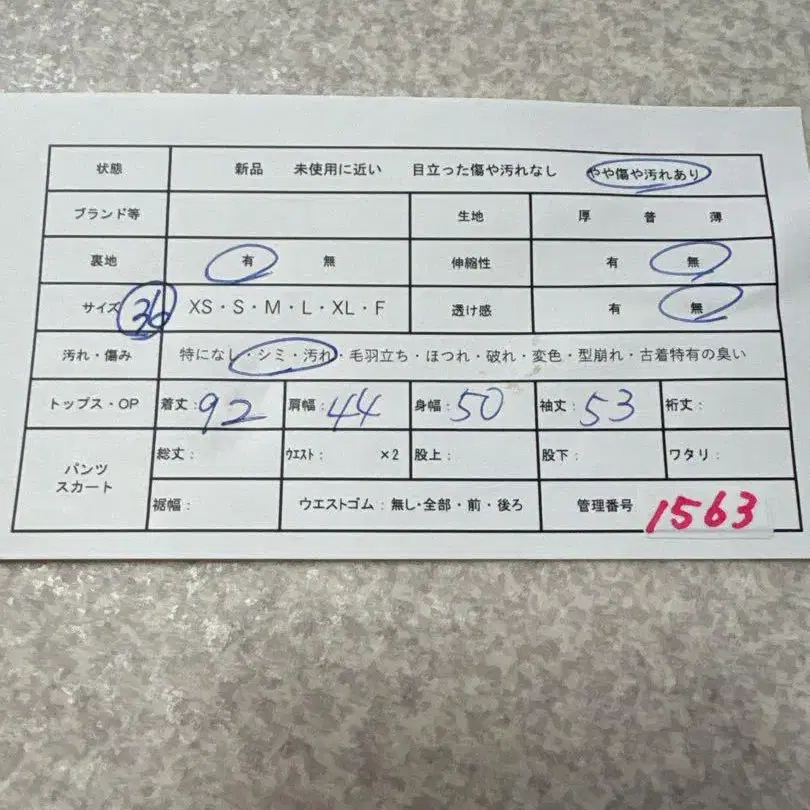 状態 新品 未使用に近い 目立った傷や汚れなし やや傷や汚れあり
ブランド等 生地 厚 普 薄
裏地 有 無 伸縮性 有 無
サイズ 36 XS・S・M・L・XL・F 透け感 有 無
汚れ・傷み 特になし・シミ・汚れ・毛羽立ち・ほつれ・破れ・変色・型崩れ・古着特有の臭い
トップス・OP 着丈:92 肩幅:44 身幅:50 袖丈:53 裄丈:
パンツ スカート 総丈: ウエスト: ×2 股上: 股下: ワタリ:
裾幅: ウエストゴム:無し・全部・前・後ろ 管理番号 1563